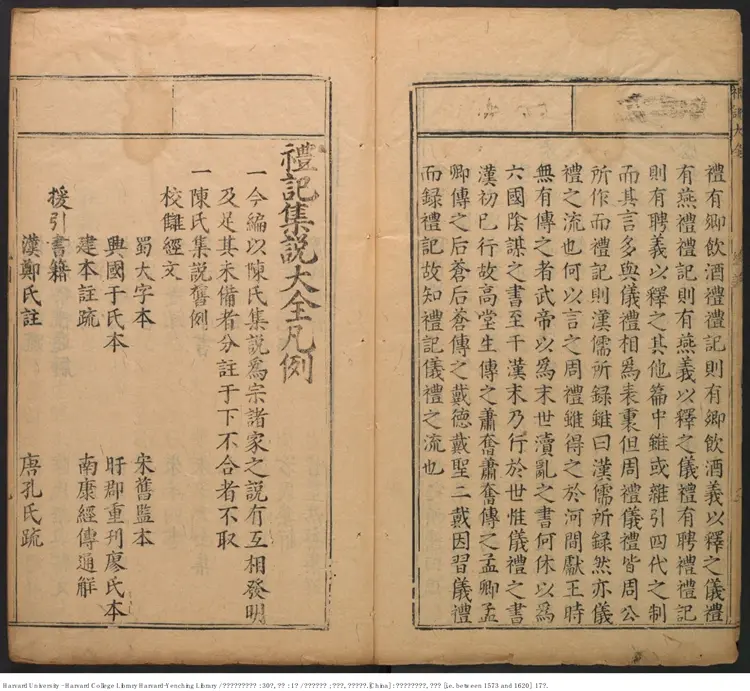 禮有鄉飲酒禮禮記則有鄉飲酒義以釋之儀禮
有燕禮禮記則有燕義以釋之儀禮有聘禮禮記
則有聘義以釋之其他篇中雖或雜引四代之制
而其言多與儀禮相為表裏但周禮儀禮皆周公
所作而禮記則漢儒所録雖曰漢儒所録然亦儀
禮之流也何以言之周禮雖得之於河間獻王時
無有傳之者武帝以為末世瀆亂之書何休以為
六國陰謀之書至于漢末乃行於世惟儀禮之書
漢初已行故高堂生傳之蕭奮蕭奮傳之孟卿孟
卿傳之后蒼后蒼傳之戴德戴聖二戴因習儀禮
而録禮記故知禮記儀禮之流也
禮記集説大全凡例
一今編以陳氏集説為宗諸家之説有互相發明
及足其未備者分註于下不合者不取
一陳氏集説舊例
校讎經文
蜀大字本 宋舊監本
興國于氏本 盱郡重刊廖氏本
建本註疏 南康經傳通解
援引書籍
漢鄭氏註 唐孔氏疏
Harvard University - Harvard College Library Harvard-Yenching Library / ????????? : 30?, ?? : 1? / ?????? ; ???, ?????. [China] : ????????, ??? [i.e. between 1573 and 1620] 17?.